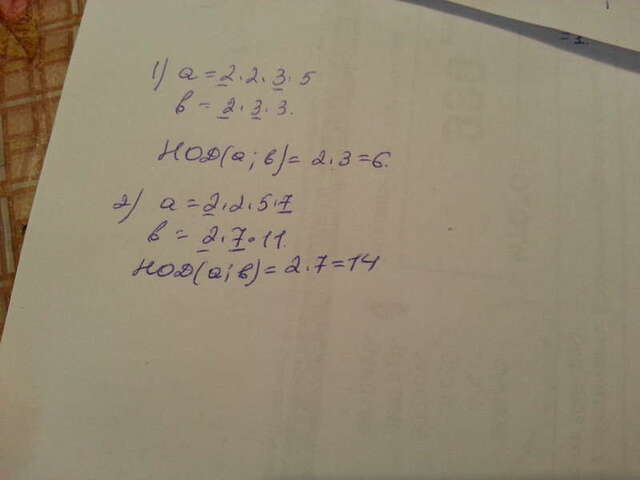 1) a = 2 · 2 · 3 · 5
в = 2 · 3 · 3.
НОД(а; в) = 2 · 3 = 6.
2) а = 2 · 2 · 5 · 7
в = 2 · 7 · 11.
НОД(а; в) = 2 · 7 = 14